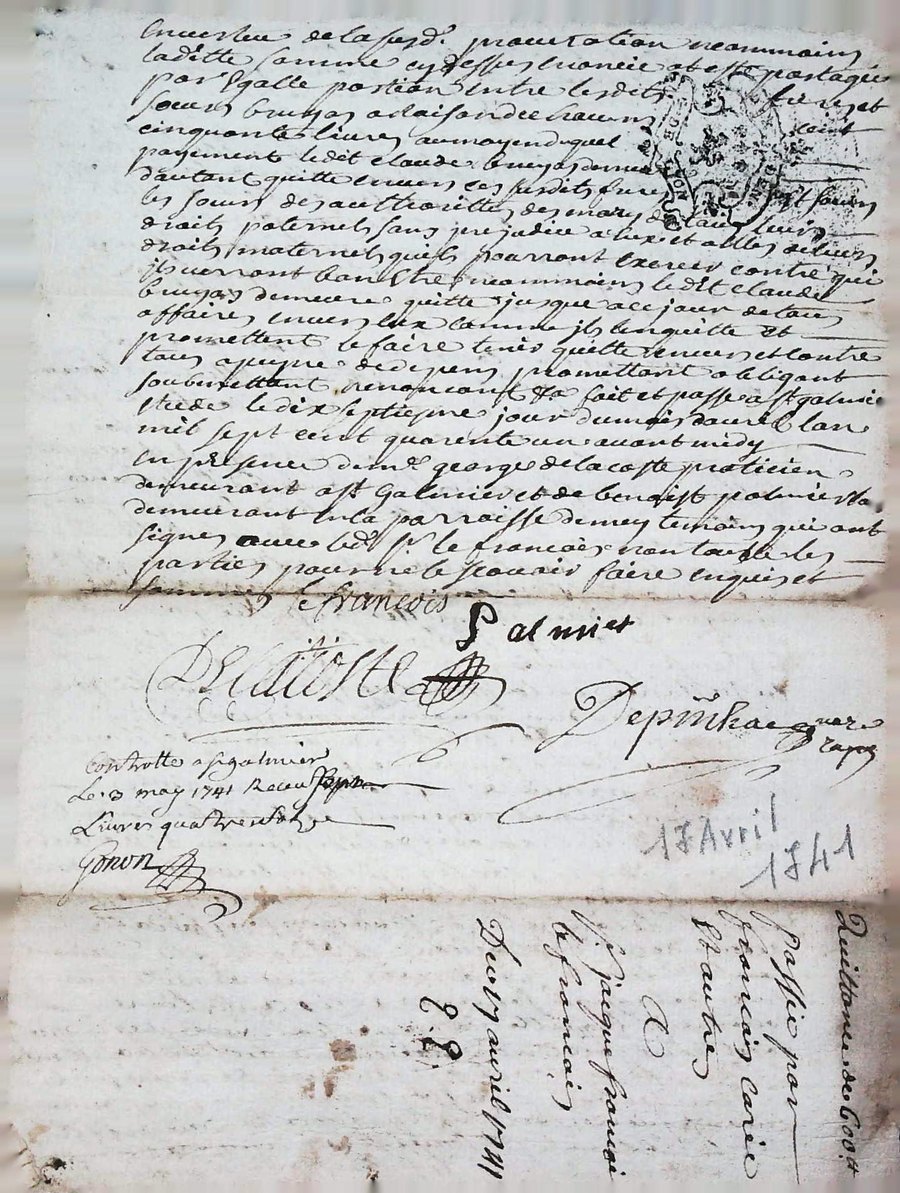 en vertu de la susd. procuration neammoins
laditte somme cy dessus enoncé a esté partagée
par Egalle portion entre lesdits freres et
soeurs bruyas a raison de chacuns cent
cinquante livres au moyen duquel
payement ledit claude bruyas demeure
dautant quitte envers ses susdits frere et soeurs
les soeurs des authorittes des marys de leurs
droits paternels sans prejudice a eux et a elles de leurs
droits maternels quils pourront exercer contre qui
ils verront bon estre neammoins ledit claude
bruyas demeure quitte jusque a ce jour de tous
affaires envers eux comme ils lenquitte et
promettent le faire tenir quitte envers et contre
tous a peyne de depens promettant obligeant
soubmettant renoncant &a fait et passé a st galmier
estude le dix septiesme jour du mois davril lan
mil sept cent quarente un avant midy
en presence de mr george delacoste praticien
demeurant a st Galmier et de benoist palmier
demeurant en la parroisse de mey temoins qui ont
signes avec led. sr. le francois non lesd. les
parties pour ne le scavoir faire enquis et
sommes le francois
Palmier
Delacoste
Depinhac
controlle a st galmier
Le 3 may 1741 Receu
Livres quatre
Gonon
17 Avril
1741
Quittance de 600 tt
passée par
francois
et autres
A
sr. jacque francoi
le francois
Du 17 avril 1741
E. E.